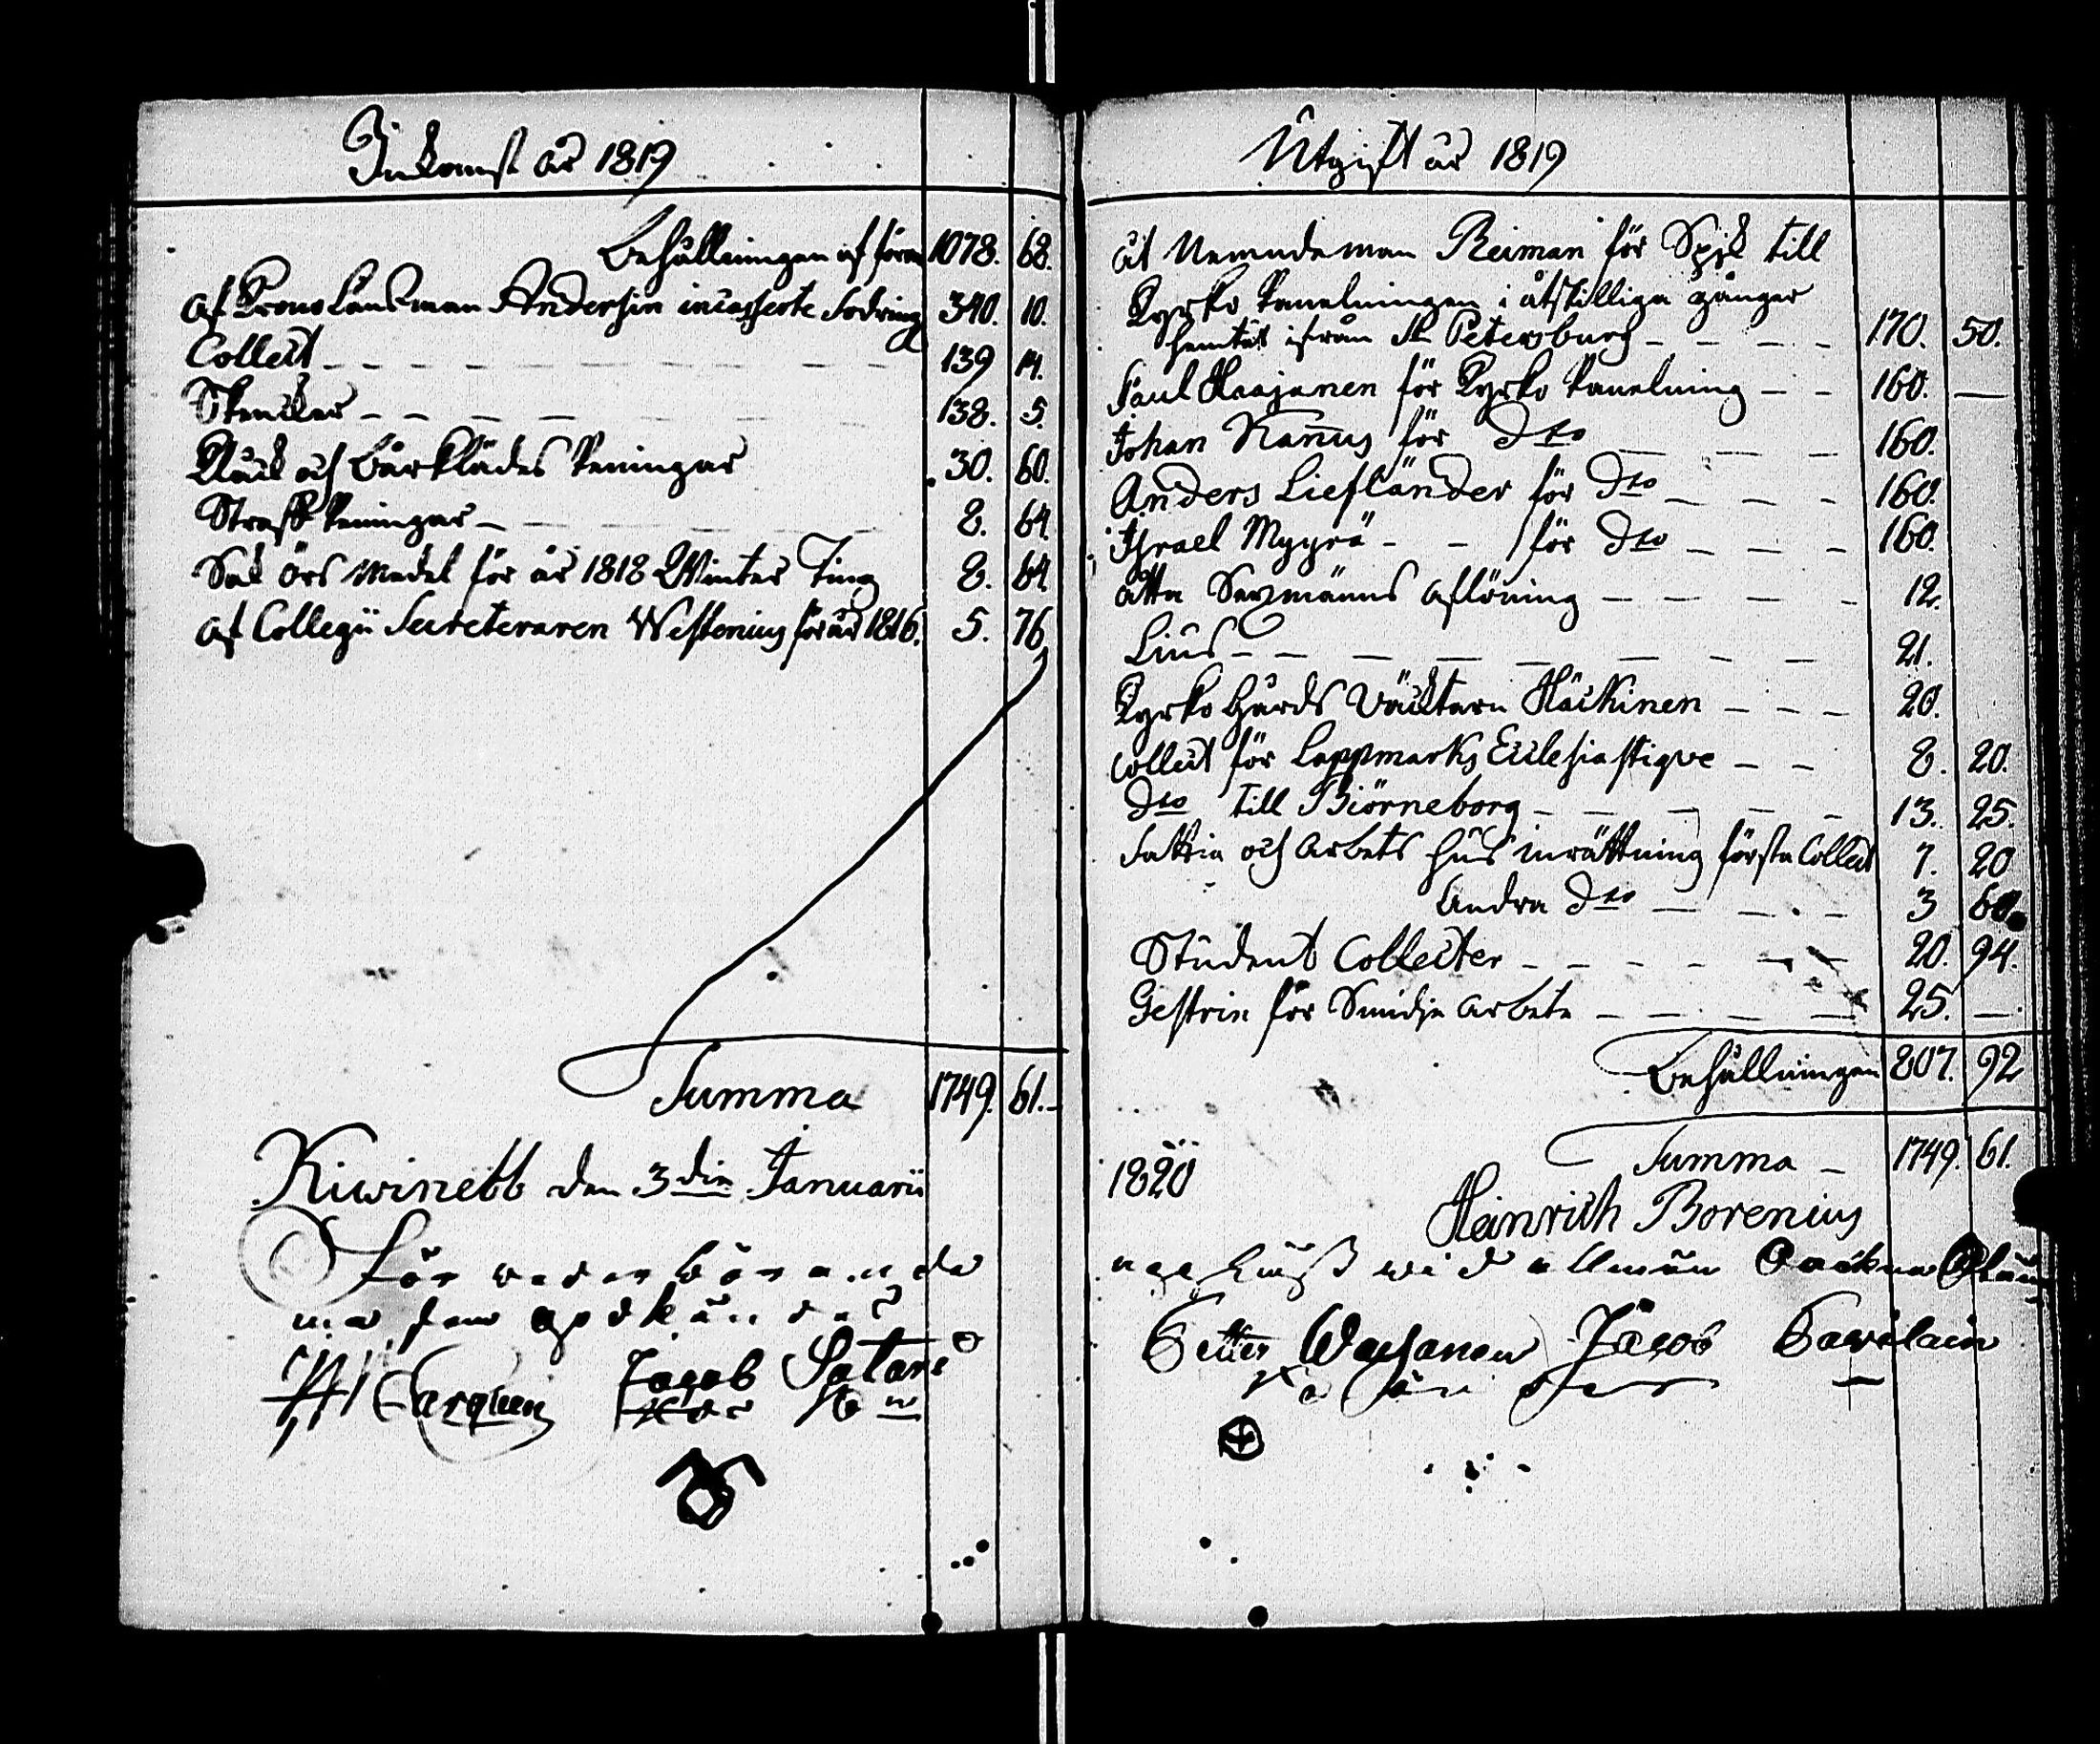 Inkomst år 1819
Behållningen af förra 1078. 68.
af Krono Länsman Andersin incasserte fodring 340. 10.
Collect 139 14.
Skencker 138. 5.
Klåck och Bårklädes peningar 30. 60.
Straff peningar 8. 64.
Sak Örs Medel för år 1818 Winter Ting 8. 64.
af Collegii Secreteraren Westenius för år 1816. 5. 76
Summa 1749. 61.
Kiwinebb den 3die Januarii
för
Jacob
Utgift år 1819
åt Nemndeman Reiman för Spik till
Kyrko panelningen i åtskilliga gånger
hemtat ifrån St Petersburg 170. 50.
Paul Haajanen för Kyrko panelning 160. —
Johan Nanus för Dto 160.
Anders Liefländer för Dto 160.
Israel Myyrä för Dto 160.
åtta Sexmänns aflöning 12.
Lius 21.
Kyrko Gårds Väcktarn Häckinen 20.
Collect för Lappmarks Ecclesiastique 8. 20.
Dto till Biörneborg 13. 25.
Fattig och Arbets hus inrättning första Collect 7. 20
Andra Dto 3 60.
Student Collecter 20. 94.
Gestrin för Smidje Arbete 25. —
Behållningen 807. 92
Summa 1749. 61.
1820
Heinrich Borenius
Jacob